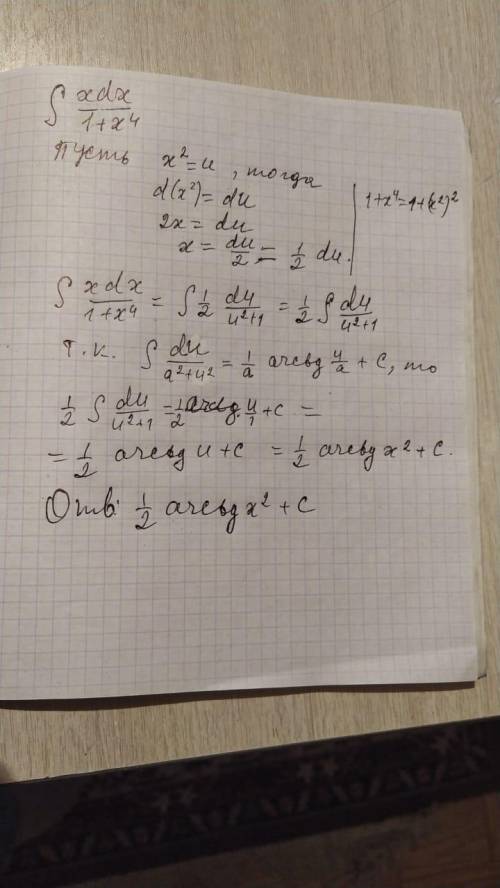 ∫ xdx/1+x⁴
Пусть x²=u, тогда
d(x²)=du
2x=du
x=du/2=1/2 du.
1+x⁴=1+(x²)²
∫ xdx/1+x⁴ = ∫ 1/2 du/u²+1 = 1/2 ∫ du/u²+1
т.к. ∫ du/a²+u² = 1/a arctg u/a + C, то
1/2 ∫ du/u²+1 = 1/2 arctg u/1 + C =
= 1/2 arctg u + C = 1/2 arctg x² + C.
Отв: 1/2 arctg x² + C